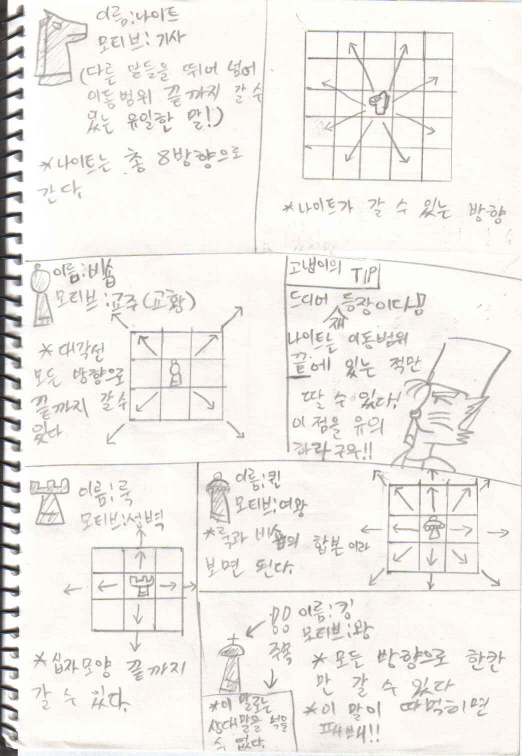 이름:나이트
모티브:기사
(다른 말들을 뛰어 넘어
이동범위 끝까지 갈 수
있는 유일한 말!)
*나이트는 총 8방향으로
간다.
*나이트가 갈 수 있는 방향
이름:비숍
모티브:교주(교황)
*대각선
모든 방향으로
끝까지 갈 수
있다
고냅이의 TIP
드디어 등장이다!!
재
나이트는 이동범위
끝에 있는 적만
딸 수 있다!
이 점을 유의
하라구우!!
이름:룩
모티브:성벽
*십자모양 끝까지
갈 수 있다.
이름:퀸
모티브:여왕
*룩과 비숍의 합본이라
보면 된다.
이름:킹
모티브:왕
주목
*모든 방향으로 한칸
만 갈 수 있다
*이 말이 따먹히면
패배!!
*이 말로는
상대말을 먹을
수 없다.